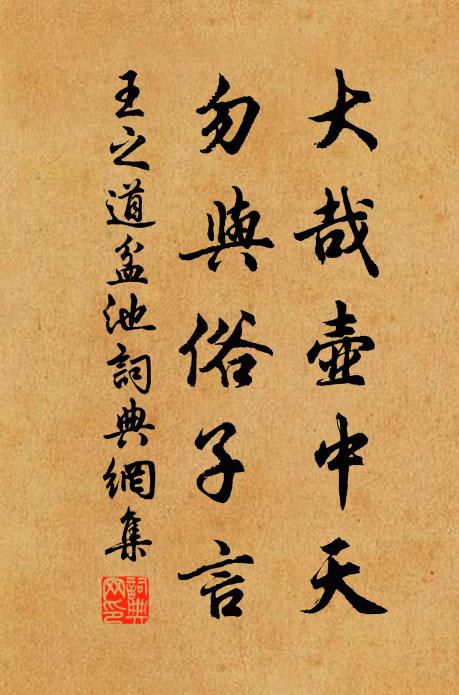 大哉壺中天
勿與俗子言
王之道盆池詞典網集
詞典網印